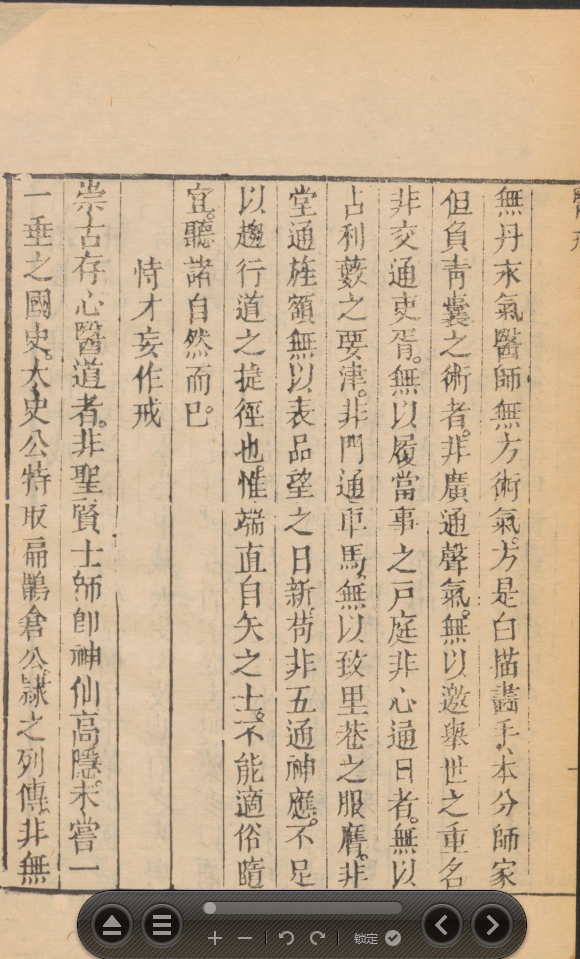 無丹汞氣醫師無方術氣方是白描畵手本分師家
但負靑囊之術者。非廣通聲氣。無以邀舉世之重名
非交通吏胥。無以履當事之戸庭非心通日者。無以
占利藪之要津。非門通車馬。無以致里巷之服膺。非
堂通旌額無以表品望之日新。苟非五通神應。不足
以趨行道之捷徑也。惟端直自矢之士。不能適俗隨
宜。聽諸自然而已。
恃才妄作戒
崇古存心醫道者。非聖賢士師卽神仙高隱。未嘗一
一垂之國史。太史公特取扁鵲倉公。隷之列傳。非無
锁定